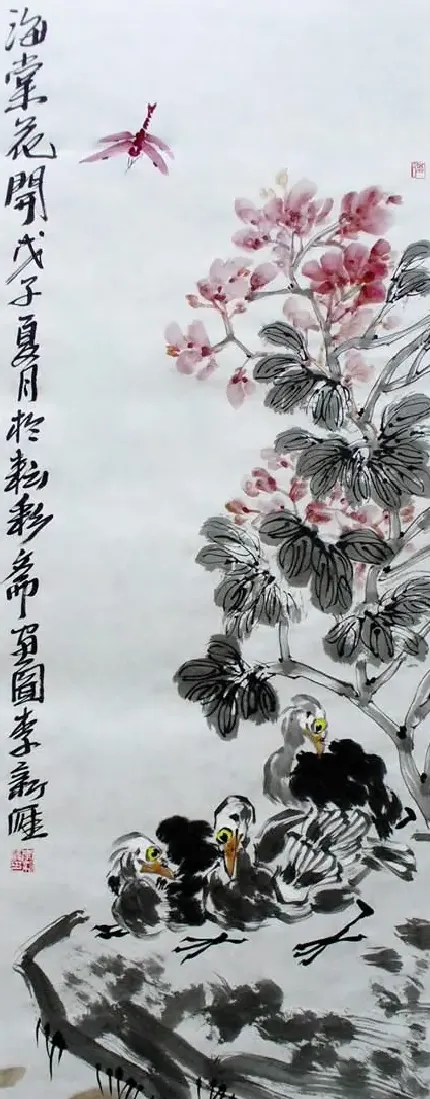 海棠花開戊子夏月於耘彩斋畫圖李新睚